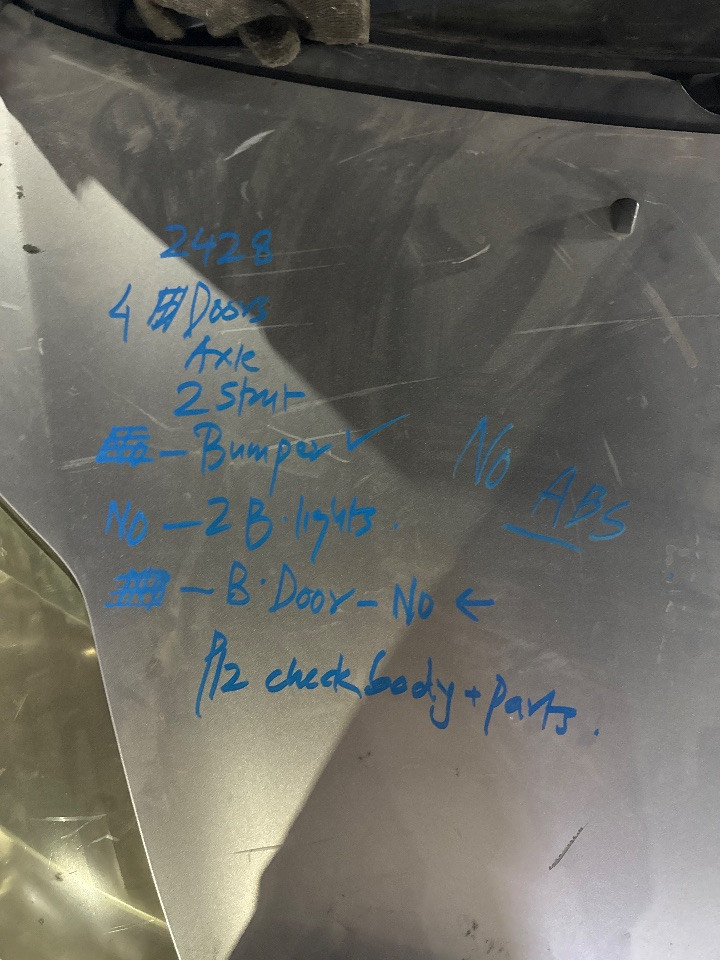 2428
4 Doors
Axle
2 Strut
- Bumper ✓
No ABS
No - 2 B.lights.
- B.Door - No ←
Plz check body + parts.